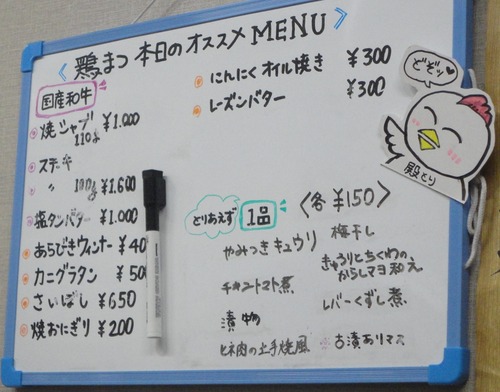 鶏まつ 本日のオススメ MENU
国産和牛
焼シャブ 110g ¥1.000
ステーキ
〃 100g ¥1.600
塩タンバター ¥1.000
あらびきウィンナー ¥40
カニグラタン ¥50
さいぼし ¥650
焼おにぎり ¥200
にんにくオイル焼き ¥300
レーズンバター ¥300
どぞッ♥
殿とり
とりあえず 1品 〈各 ¥150〉
やみつきキュウリ
チキントマト煮
漬物
ヒネ肉の土手焼風
梅干し
きゅうりとちくわの
からしマヨ和え
レバーくずし煮
古漬ありマス